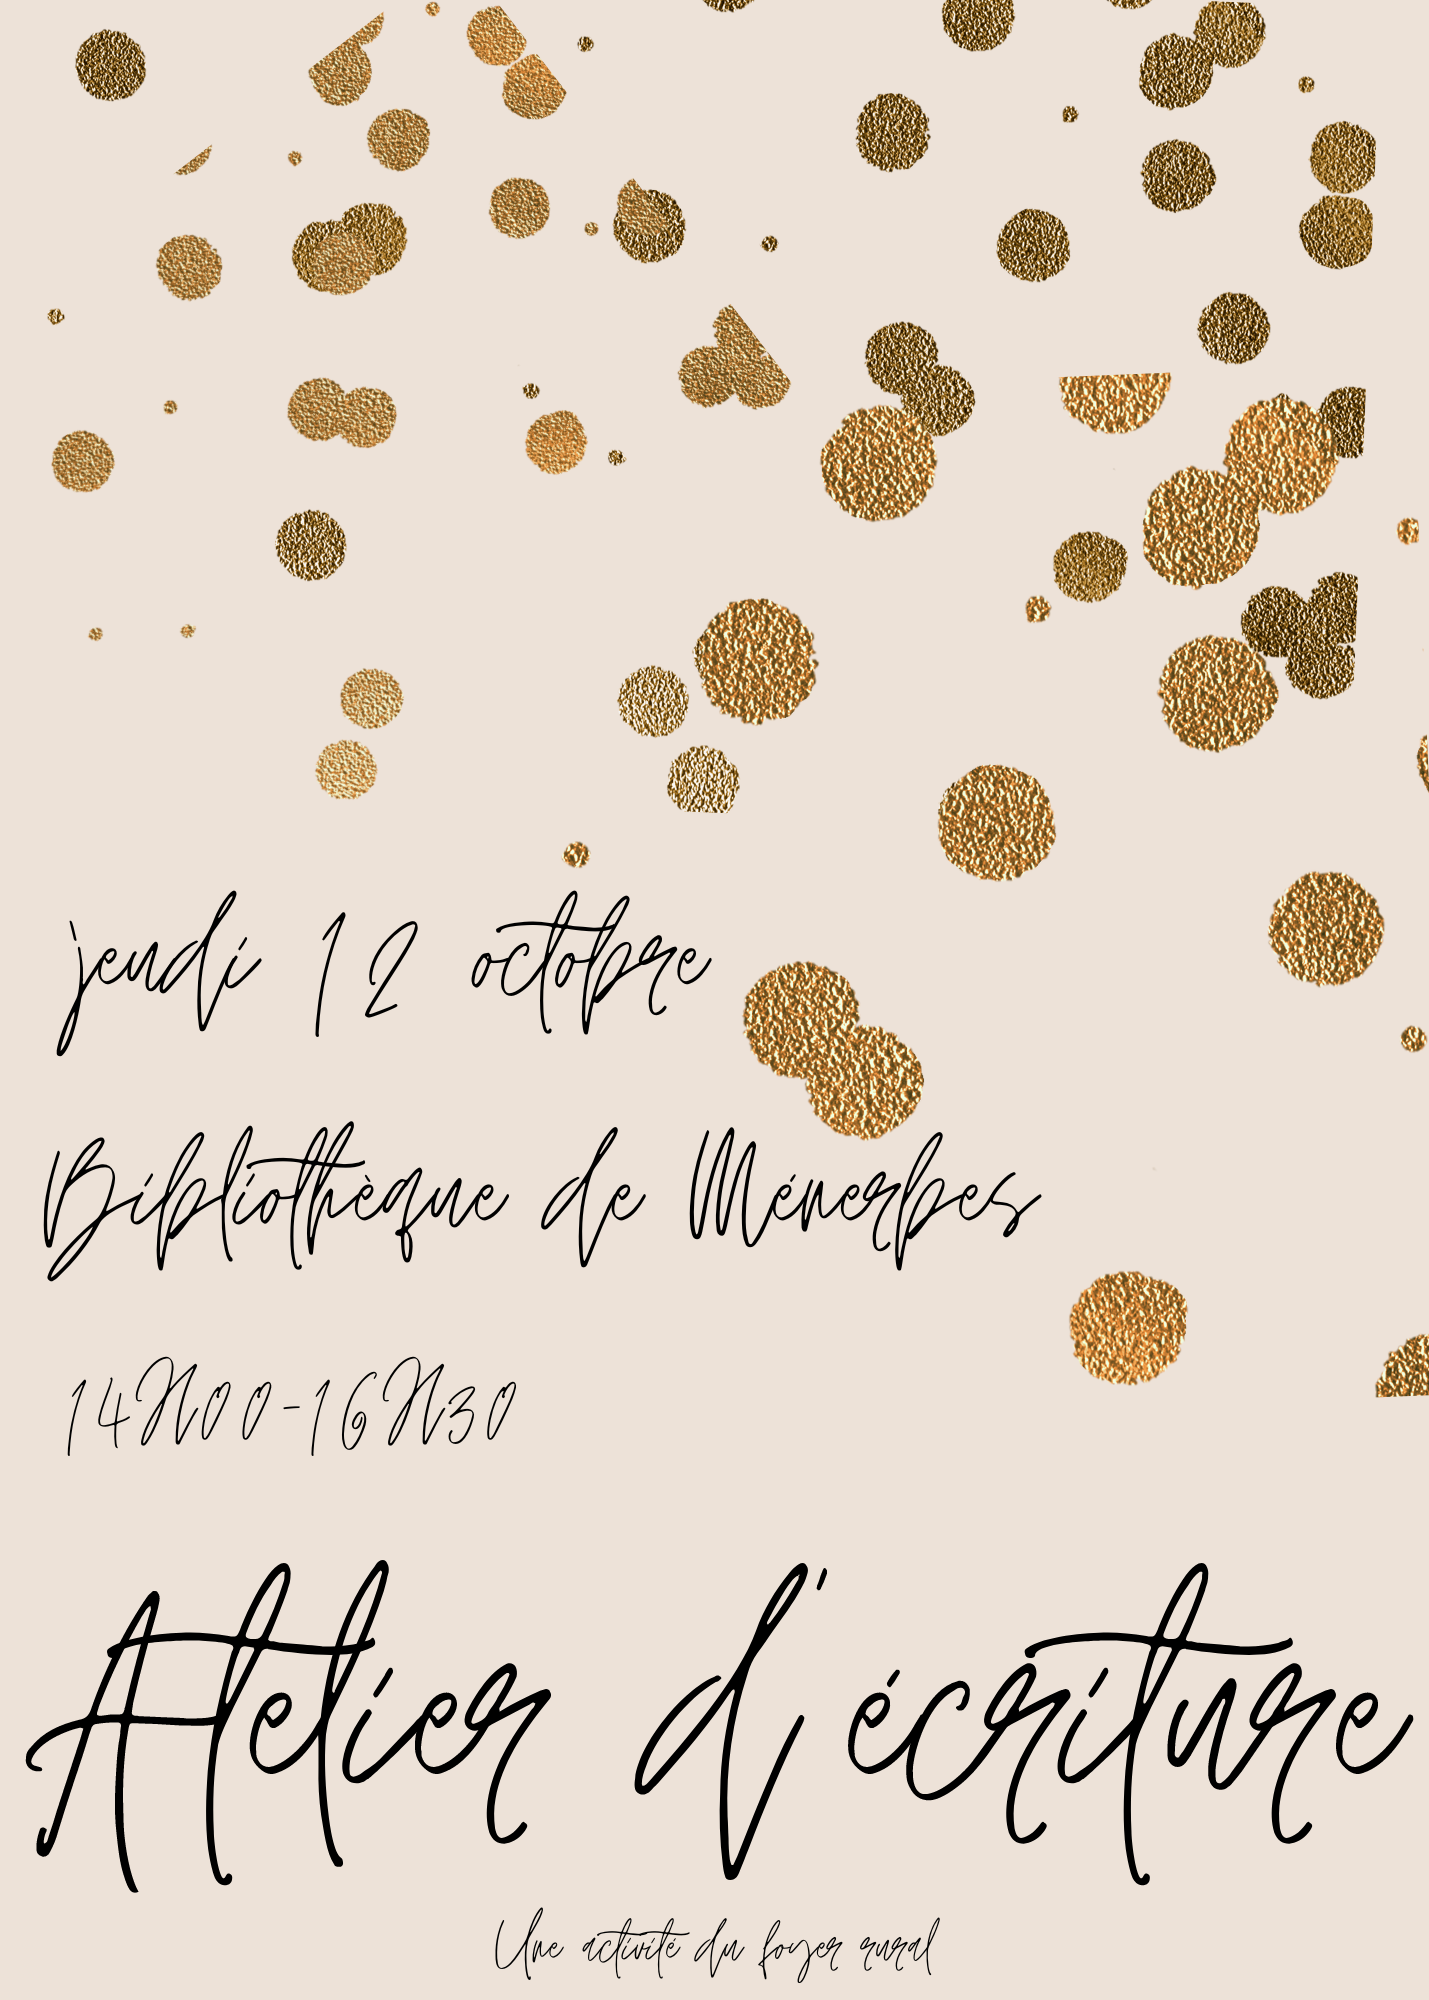 jeudi 12 octobre
Bibliothèque de Ménerbes
14H00-16H30
Atelier d'écriture
Une activité du foyer rural